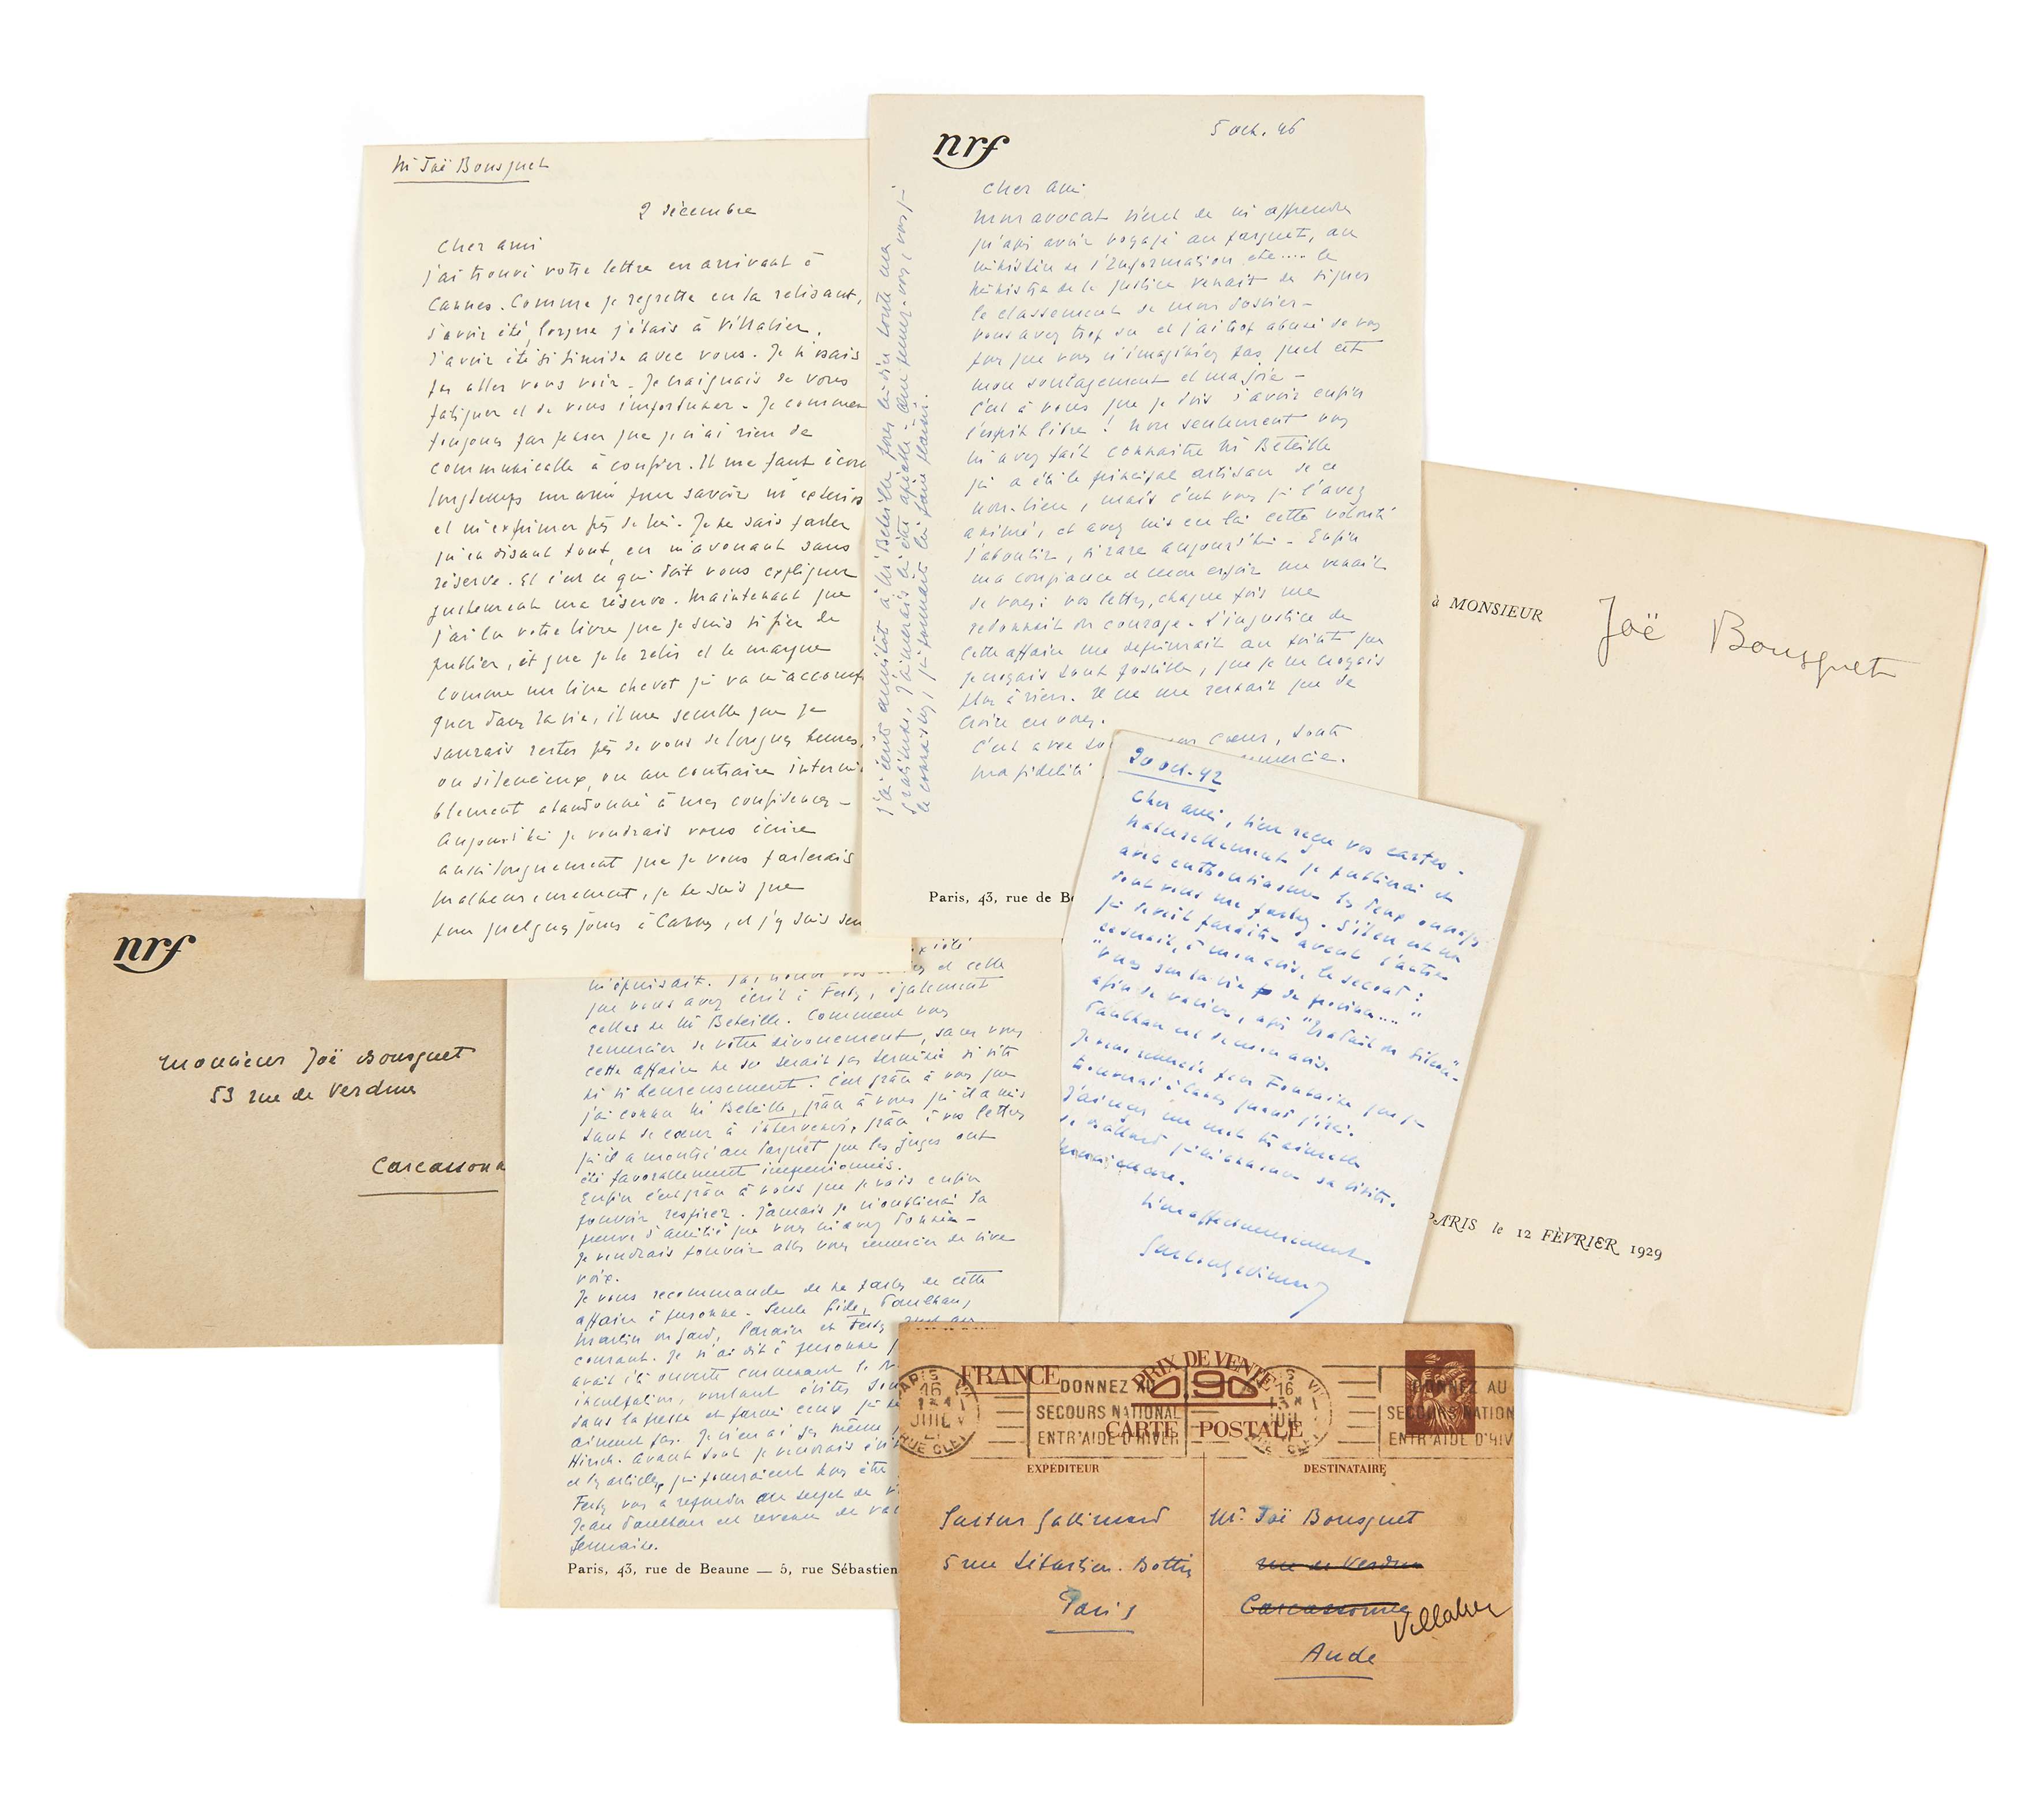 Mr Joë Bousquet
2 décembre
Cher ami
j'ai trouvé votre lettre en arrivant à
Cannes. Comme je regrette en la relisant,
d'avoir été, lorsque j'étais à Villalier,
d'avoir été si timide avec vous. Je n'osais
pas aller vous voir. Je craignais de vous
fatiguer et de vous importuner. Je commen
toujours par penser que je n'ai rien de
communicable à confier. Il me faut écou
longtemps un ami pour savoir m'
et m'exprimer près de lui. Je ne sais parler
qu'en disant tout, en m'avouant sans
réserve. Et c'est ce qui doit vous expliquer
justement ma réserve. Maintenant que
j'ai lu votre livre que je suis si fier de
publier, et que je le relis et le marque
comme un livre chevet qui va m'accomp
gner dans la vie, il me semble que je
saurais rester près de vous de longues heures,
ou silencieux, ou au contraire intermi
blement abandonné à mes confidences -
Aujourd'hui je voudrais vous écrire
aussi longuement que je vous parlerais
Malheureusement, je ne suis que
pour quelques jours à Cannes, et j'y suis seu
nrf
5 oct. 46
Cher ami
Mon avocat vient de m'apprendre
qu'après avoir voyagé au parquet, au
ministère de l'Information etc.... le
Ministre de la justice venait de signer
le classement de mon dossier -
Vous avez trop su et j'ai trop abusé de vous
pour que vous n'imaginiez pas quel est
mon soulagement et ma joie -
C'est à vous que je dois d'avoir enfin
l'esprit libre ! Non seulement vous
m'avez fait connaître Mr Béteille
qui a été le principal artisan de ce
non-lieu, mais c'est vous qui l'avez
animé, et avez mis en lui cette volonté
d'aboutir, si rare aujourd'hui - Enfin
ma confiance et mon espoir me venait
de vous ; vos lettres, chaque fois me
redonnait du courage. L'injustice de
cette affaire me déprimait au point que
je croyais tout possible, que je ne croyais
plus à rien. Il ne me restait que de
croire en vous.
C'est avec tout mon cœur, toute
ma fidélité
J'ai écrit aussitôt à Mr Béteille pour lui dire toute ma
gratitude, j'aimerais
le connaissez, qui pourrait lui faire plaisir.
Paris, 43, rue de Be
20 oct. 42
Cher ami, bien reçu vos cartes -
Naturellement je publierai et
avec enthousiasme les deux ouvrages
dont vous me parlez. S'il en est un
qui devait paraître avant l'autre
ce serait, à mon avis, le second :
afin de varier, après "Traduit du Silence" -
Paulhan est de mon avis.
Je vous remercie pour Fontaine que je
trouverai à Cannes quand j'irai.
J'ai reçu un mot très aimable
sa visite.
Bien affectueusement
Gaston Gallimard
à MONSIEUR Joë Bousquet
PARIS le 12 FÉVRIER 1929
nrf
Monsieur Joë Bousquet
53 rue de Verdun
Carcassonn
m'épuisait. J'ai trouvé vos lettres et celle
que vous avez écrit à Festy, également
celles de Mr Béteille. Comment vous
remercier de votre dévouement, sans vous
cette affaire ne se serait pas terminée si vite
ni si heureusement. C'est grâce à vous que
j'ai connu Mr Béteille, grâce à vous qu'il a mis
tant de cœur à intervenir, grâce à vos lettres
qu'il a montré au Parquet que les juges ont
été favorablement impressionnés.
Enfin c'est grâce à vous que je vais enfin
pouvoir respirer. Jamais je n'oublierai la
preuve d'amitié que vous m'avez donnée -
Je voudrais pouvoir aller vous remercier de vive
voix.
Je vous recommande de ne parler de cette
affaire à personne. Seuls Gide, Paulhan,
Martin du Gard, Parain et Festy sont au
courant. Je n'ai dit à personne
avait été ouverte
inculpation, voulant éviter
dans la presse et parmi ceux qui ne
aiment pas. Je n'en ai pas même
Hirsch. Avant tout je voudrais évit
et les articles, qui pourraient
Festy vous a répondu au sujet de
Jean Paulhan est revenu de
semaine.
Paris, 43, rue de Beaune — 5, rue Sébastien
FRANCE
PRIX DE VENTE
0,90
CARTE POSTALE
DONNEZ AU
SECOURS NATIONAL
ENTR'AIDE D'HIVER
16
JUIL
DONNEZ AU
SECOURS NATION
ENTR'AIDE D'HIV
EXPÉDITEUR
DESTINATAIRE
Gaston Gallimard
5 rue Sébastien. Bottin
Paris
Mr. Joë Bousquet
rue de Verdun
Carcassonne
Villalier
Aude